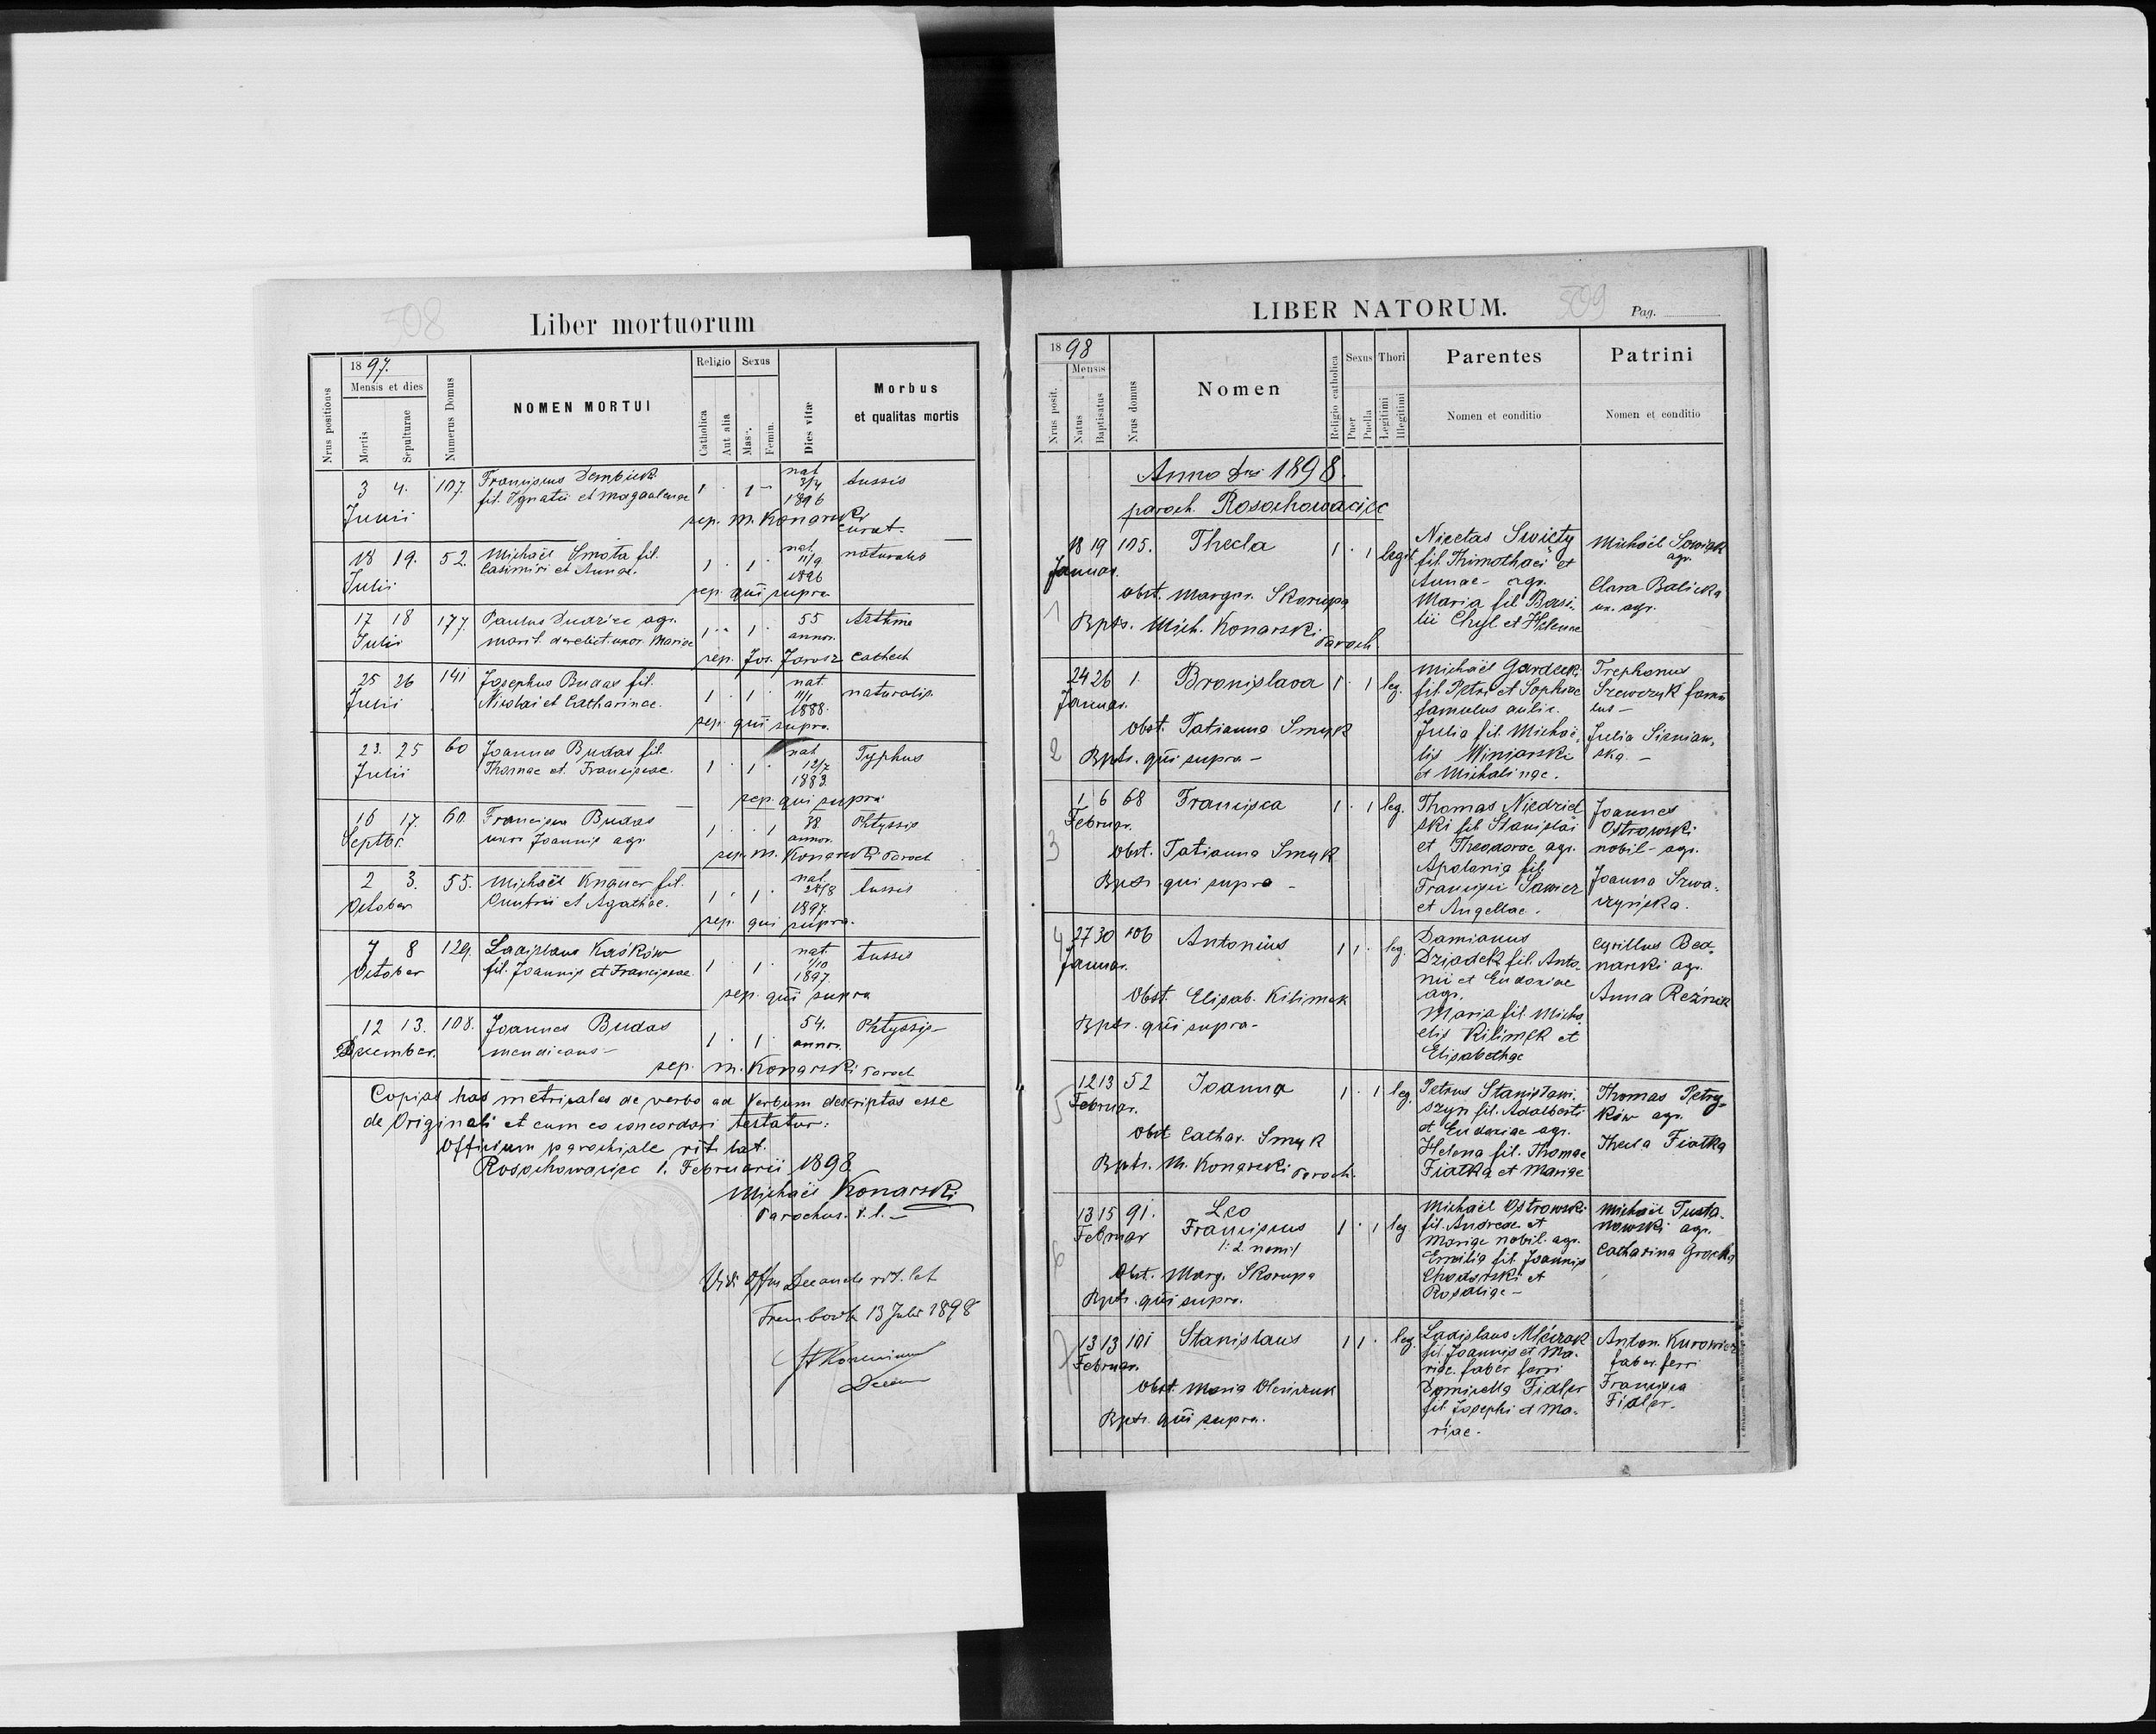 508
Liber mortuorum
Nrus positionis
1897.
Mensis et dies
Mortis
Sepulturae
Numerus Domus
NOMEN MORTUI
Religio
Catholica
Aut alia
Sexus
Masc.
Femin.
Dies vitæ
Morbus
et qualitas mortis
3 4. 107. Franciscus Dembicki 1 · 1 - nat. tussis
Junii fil. Ignatii et Magdalenae 3/4
1896
sep. M. Konarski
curat.
18 19. 52. Michaël Smota fil. 1 · 1 · nat. naturalis
Julii Casimiri et Annae. 11/9
1896
sep. qui supra
17 18 177. Paulus Dudziec agr. 1 · 1 · 55 Asthma
Julii marit. derelict. uxor. Mariae annor.
sep. Jos. Jarosz Cathech
25 26 141 Josephus Budas fil. 1 · 1 · nat. naturalis
Julii Nicolai et Catharinae. 11/1
1888.
sep. qui supra.
23. 25 60 Joannes Budas fil. 1 · 1 · nat. Typhus
Julii Thomae et Franciscae. 12/7
1883
sep. qui supra
16 17. 60. Francisca Budas 1 · · 1 38. Phtyssis
Septbr. uxor Joannis agr. annor.
sep. M. Konarski Paroch
2 3. 55. Michaël Knauer fil. 1 · 1 · nat. tussis
October et Agathae. 28/8
1897.
sep. qui supra.
7 8 129. Ladislaus Kasków 1 · 1 · nat. tussis
October fil. Joannis et Franciscae 1/10
1897.
sep. qui supra
12 13. 108. Joannes Budas 1 · 1 · 54. Phtyssis
December. mendicans annor.
sep. M. Konarski Paroch
Copias has metricales de verbo ad verbum descriptas esse
de Originali et cum eo concordari testatur:
Officium parochiale rit. lat.
Rosochowaciec 1. Februarii 1898
Michaël Konarski
Parochus. r. l.
Vidi Offm Decanale rit. lat
Trembowla 13 Julii 1898
LIBER NATORUM.
509
Pag.
1898
Nrus posit.
Mensis
Natus
Baptisatus
Nrus domus
Nomen
Religio catholica
Sexus
Puer
Puella
Thori
Legitimi
Illegitimi
Parentes
Nomen et conditio
Patrini
Nomen et conditio
Anno Dni 1898.
paroch. Rosochowaciec
18 19 105. Thecla 1 · 1 legit.
Januar.
obst. Margar. Skorupa
1 Bpts. Mich. Konarski Paroch.
Nicetas Swięty
fil. Thimothaei et
Annae - agr.
Maria fil. Basi-
lii Chyl et Helenae
Michaël Sowizk
agr.
Clara Balicka
ux. agr.
24 26 1. Bronislava 1 · 1 leg.
Januar.
Obst. Tatianna Smyk
2 Bpts. qui supra -
Michaël Gardecki
fil. Petri et Sophiae
famulus aulic.
Julia fil. Michaë-
lis Winiarski
et Michalinae.
Trephonus
Szewczyk famu
lus -
Julia Sieniaw-
ska. -
1 6 68 Francisca 1 · 1 leg.
Februar.
3 Obst. Tatianna Smyk
Bpts. qui supra -
Thomas Niedziel
ski fil. Stanislai
et Theodorae agr.
Apolonia fil.
Francisci Sawicz
et Angellae.
Joannes
Ostrowski
nobil - agr.
Joanna Szwa-
czyńska.
4 27 30 106 Antonius 1 1 · leg.
Januar.
Obst. Elisab. Kilimek
Bpts. qui supra -
Damianus
Dziadek fil. Anto-
nii et Eudoxiae
agr.
Maria fil. Micha
elis Kilimek et
Elisabethae
Cyrillus Bed-
narski agr.
Anna Reźnik
5 12 13 52 Joanna 1 · 1 leg.
Februar.
Obst. Cathar. Smyk
Bpts. M. Konarski Paroch.
Petrus Stanisławi-
szyn fil. Adalberti
et Eudoxiae agr.
Helena fil. Thomae
Fiałka et Mariae
Thomas Petry-
ków agr.
Thecla Fiałka
13 15 91. Leo 1 · 1 leg
Februar Franciscus
/: 2 nom:/
6 Obst. Marg. Skorupa
Bpts. qui supra.
Michaël Ostrowski
fil. Andreae et
Mariae nobil. agr.
Emilia fil. Joannis
Chodorski et
Rosaliae -
Michaël Tusta-
nowski agr.
Catharina Grocka
7 13 13 101 Stanislaus 1 1 · leg.
Februar.
Obst. Maria Oleńczuk
Bpts. qui supra.
Ladislaus Mścizak
fil. Joannis et Ma-
riae. faber ferri
Domicella Fidler
fil. Josephi et Ma-
riae.
Anton. Kurowicz
faber. ferri
Francisca
Fidler.